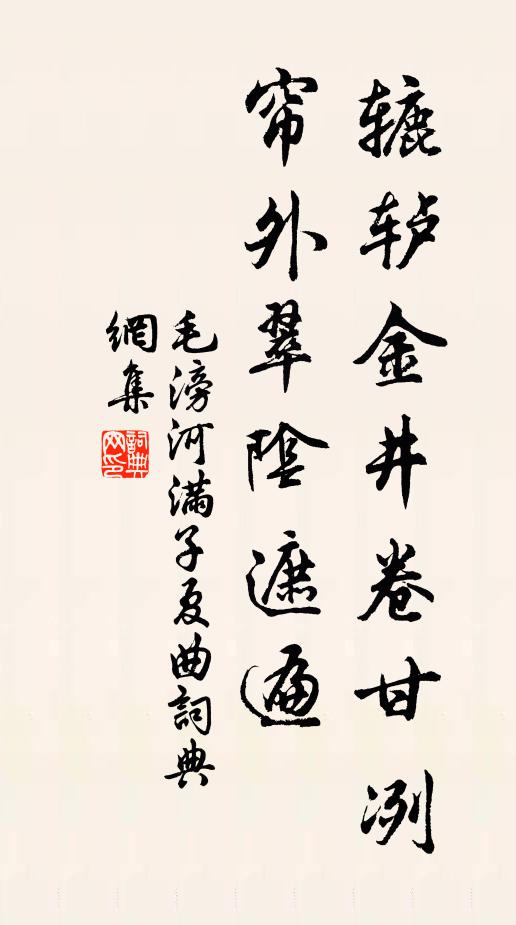 辘轳金井卷甘冽
帘外翠陰遮遍
毛滂河滿子夏曲詞典
網集
詞典網印